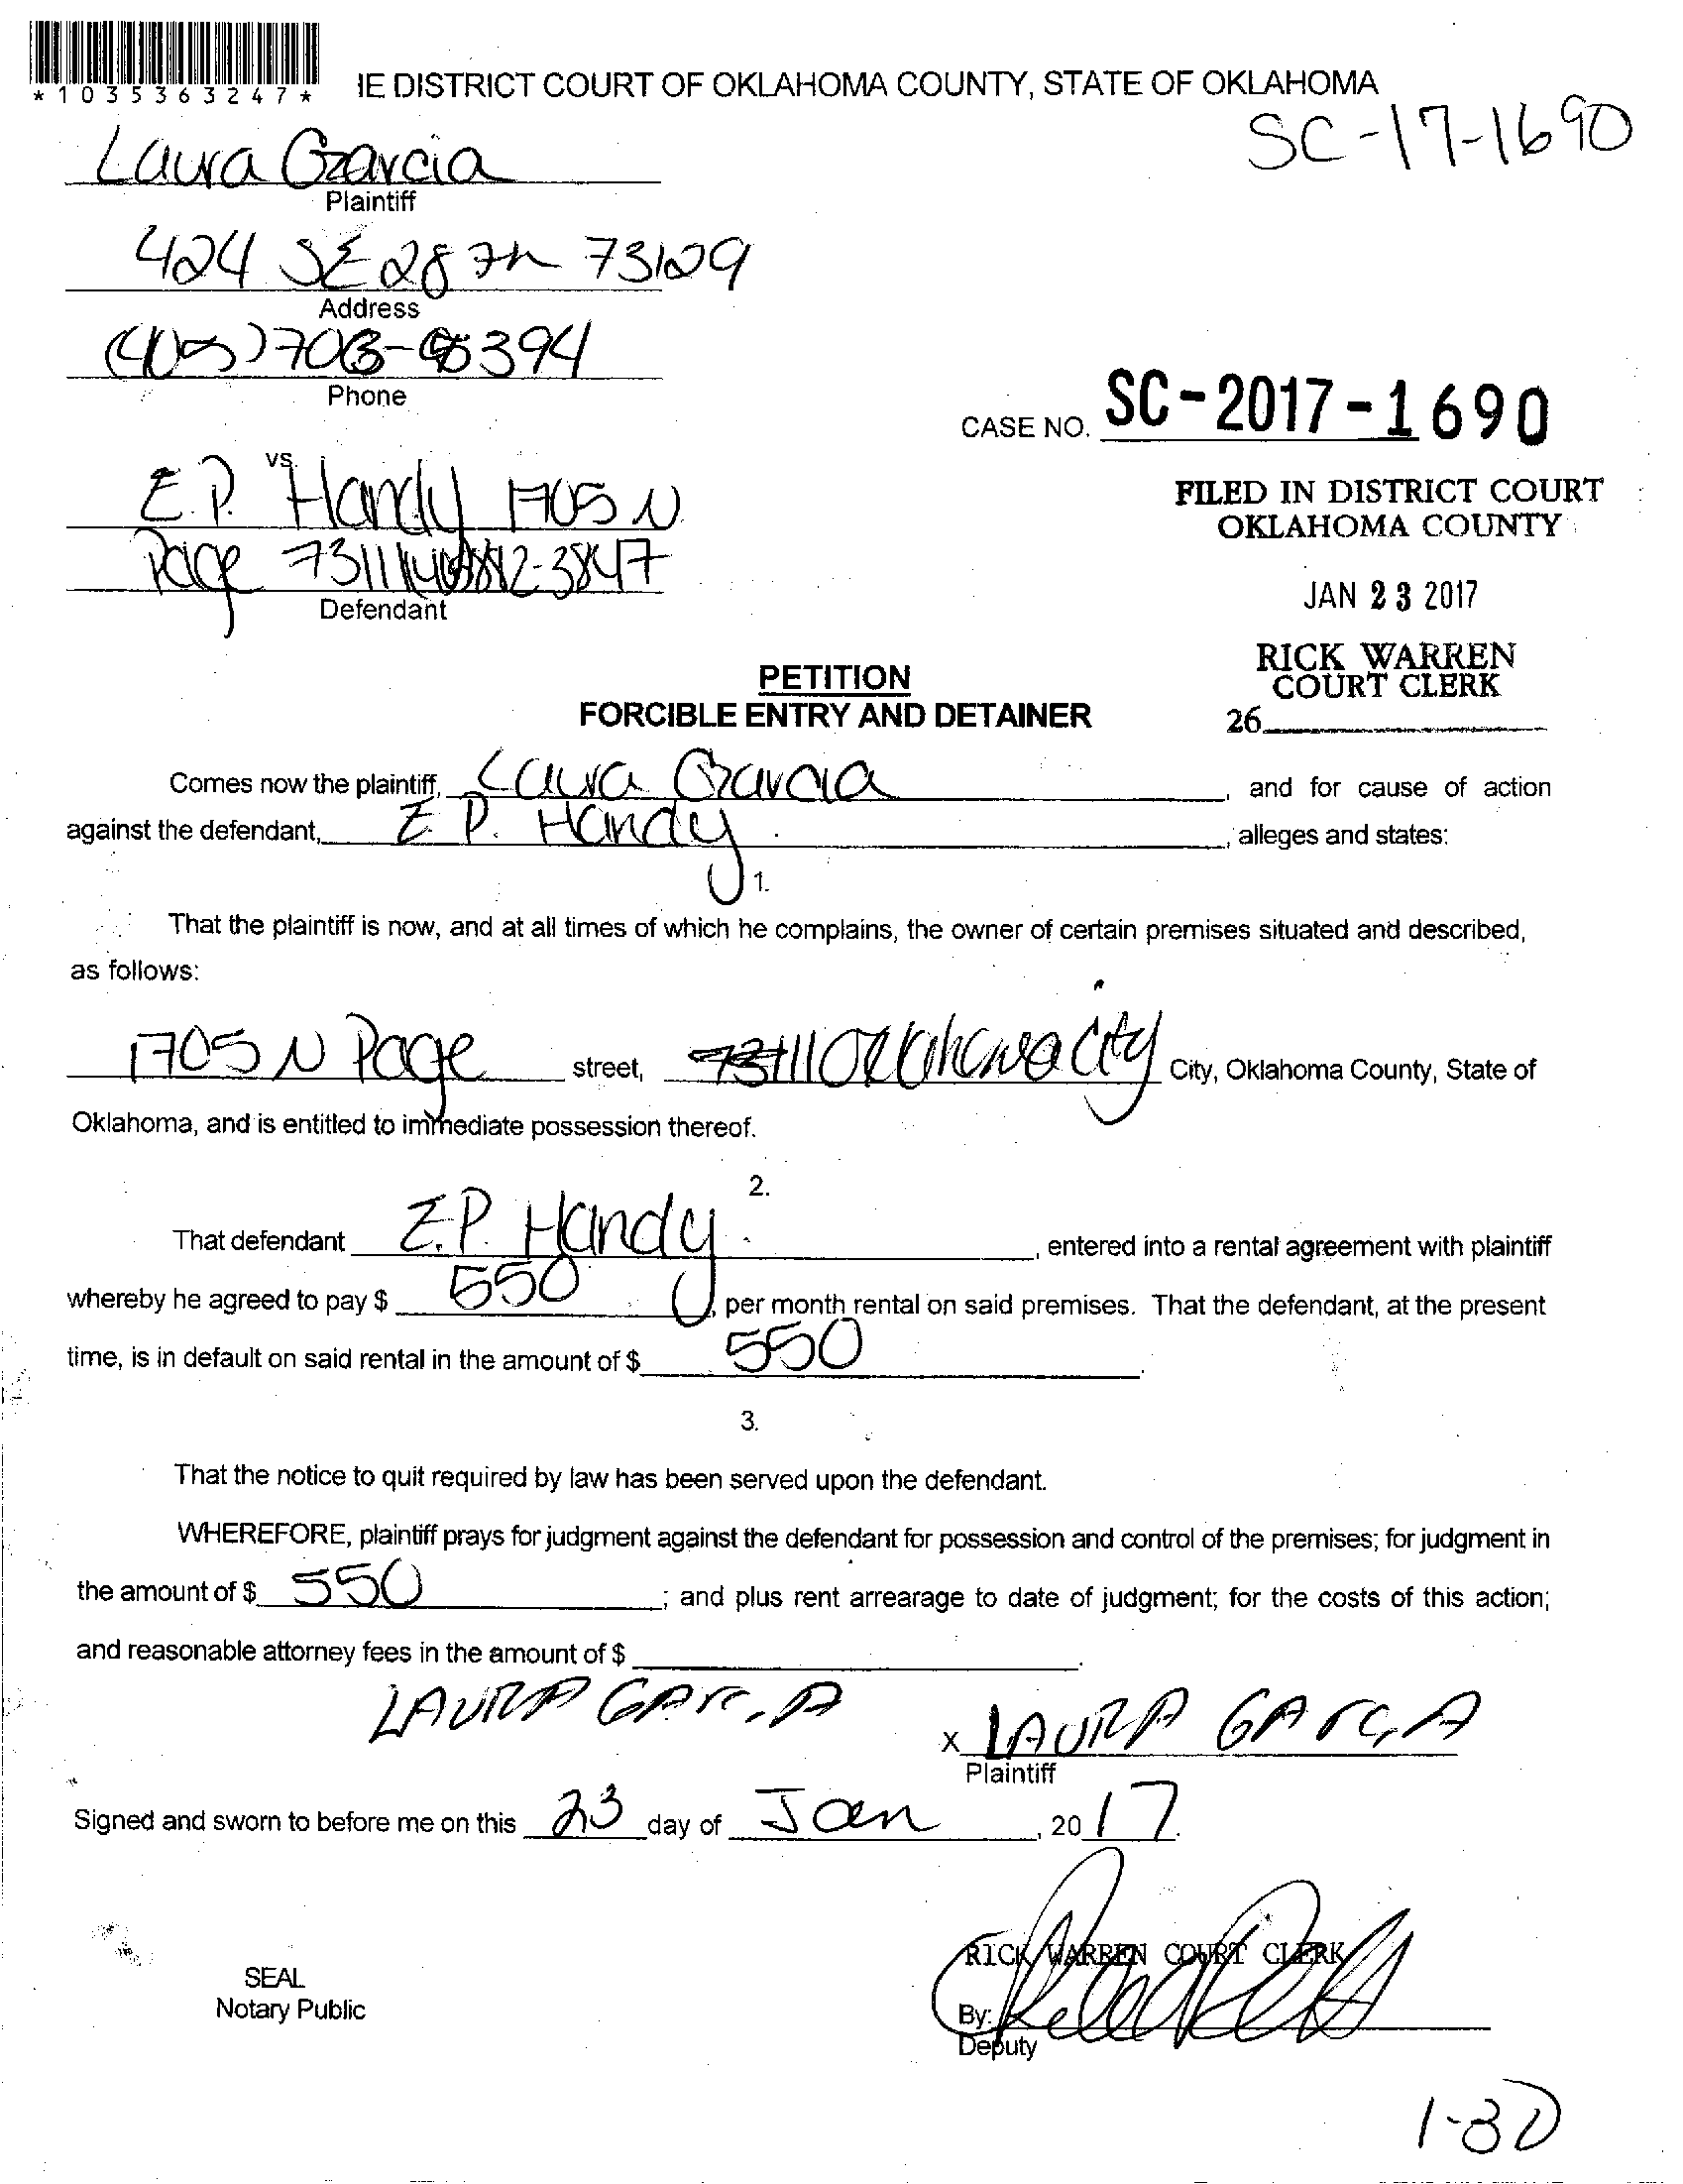 *1035363247*
IE DISTRICT COURT OF OKLAHOMA COUNTY, STATE OF OKLAHOMA
SC-17-1690
Laura Garcia
Plaintiff
424 SE 28th 73129
Address
(405)703-
Phone
CASE NO. SC-2017-1690
vs.
E.P. Handy 1705 N
Page 73111
Defendant
FILED IN DISTRICT COURT
OKLAHOMA COUNTY
JAN 23 2017
RICK WARREN
COURT CLERK
26
PETITION
FORCIBLE ENTRY AND DETAINER
Comes now the plaintiff, Laura Garcia, and for cause of action
against the defendant, E.P. Handy, alleges and states:
1.
That the plaintiff is now, and at all times of which he complains, the owner of certain premises situated and described,
as follows:
1705 N Page street, Oklahoma City City, Oklahoma County, State of
Oklahoma, and is entitled to immediate possession thereof.
2.
That defendant E.P. Handy, entered into a rental agreement with plaintiff
whereby he agreed to pay $ 550, per month rental on said premises. That the defendant, at the present
time, is in default on said rental in the amount of $ 550.
3.
That the notice to quit required by law has been served upon the defendant.
WHEREFORE, plaintiff prays for judgment against the defendant for possession and control of the premises; for judgment in
the amount of $ 550; and plus rent arrearage to date of judgment; for the costs of this action;
and reasonable attorney fees in the amount of $.
LAURA GARCIA
x LAURA GARCIA
Plaintiff
Signed and sworn to before me on this 23 day of Jan, 2017.
RICK WARREN COURT CLERK
SEAL
Notary Public
By:
Deputy
1-30